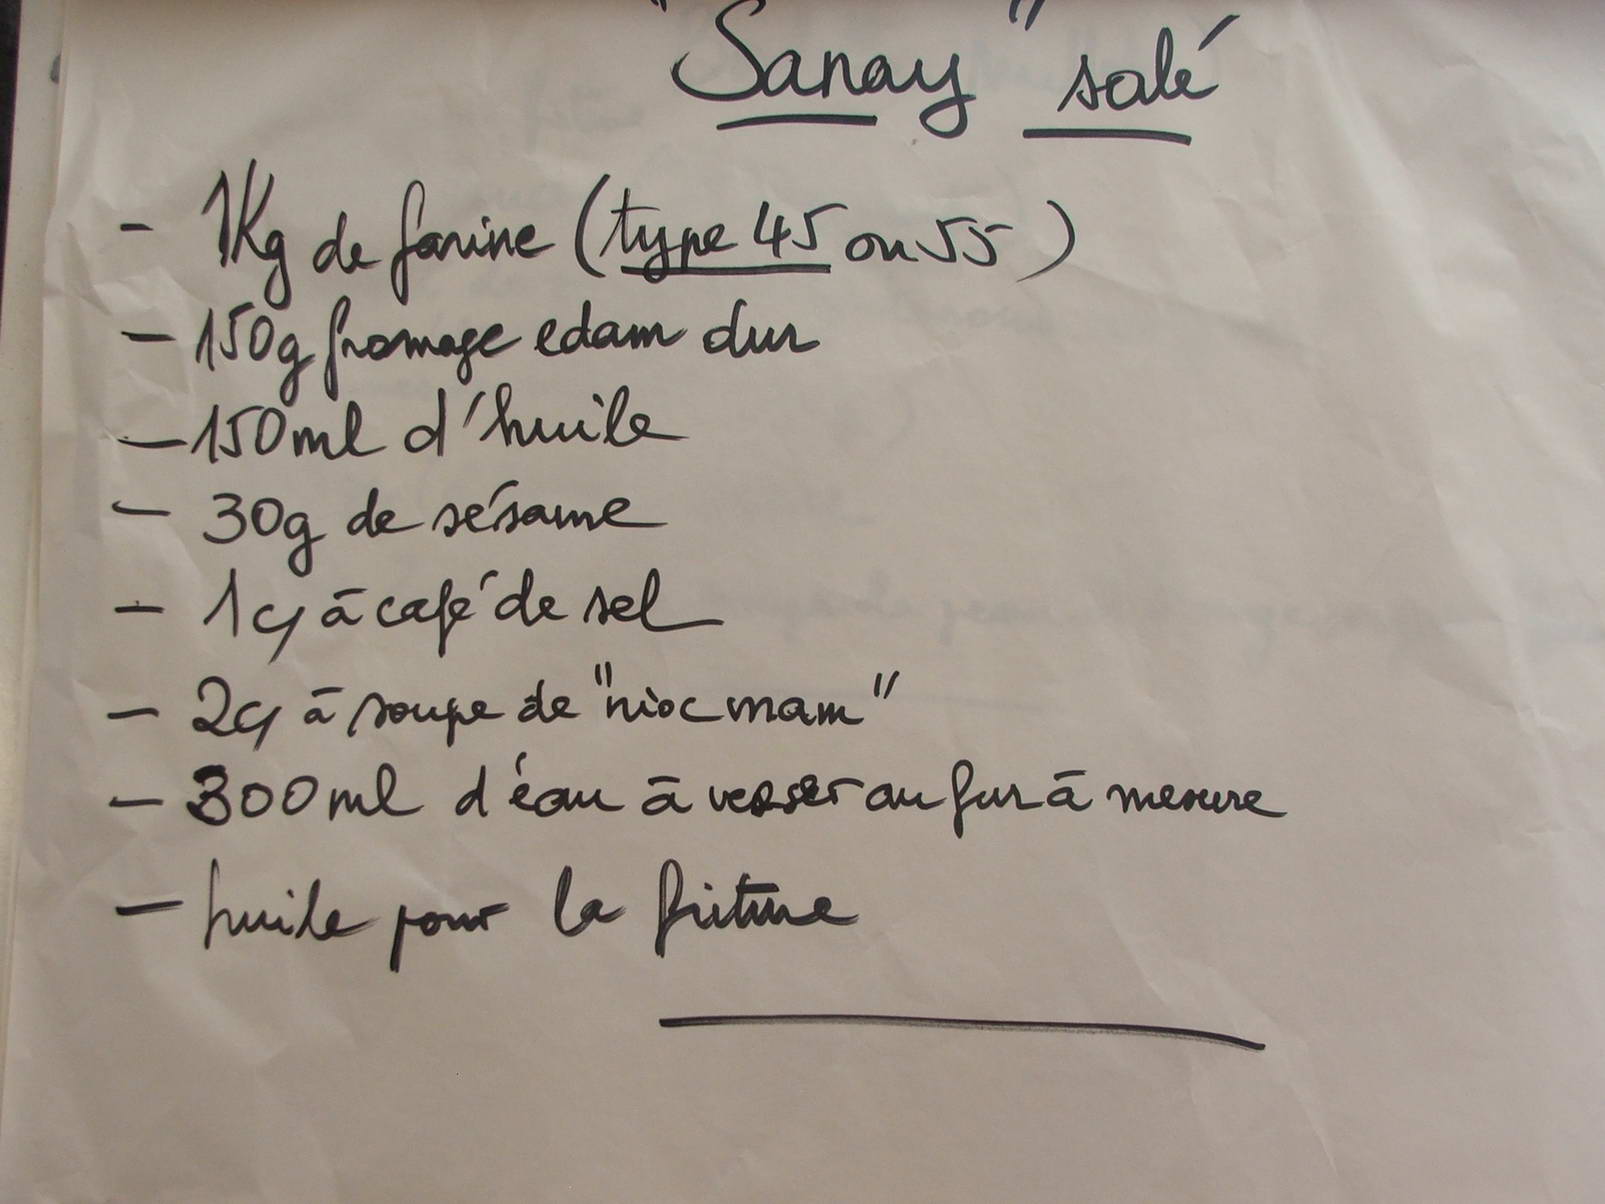 "Sanay" salé
- 1Kg de farine (type 45 ou 55)
- 150g fromage edam dur
- 150ml d'huile
- 30g de sésame
- 1 cq à café de sel
- 2cq à soupe de "nioc mam"
- 300ml d'éau à verser au fur à mesure
- huile pour la friture